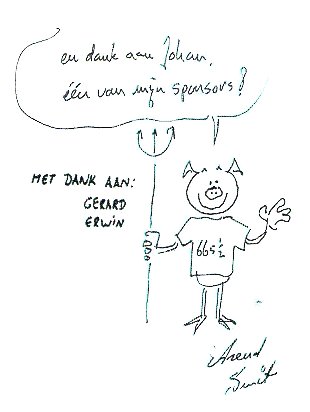 en dank aan Johan,
één van mijn sponsors!
MET DANK AAN:
GERARD
ERWIN
665 ½
Arend
Smit